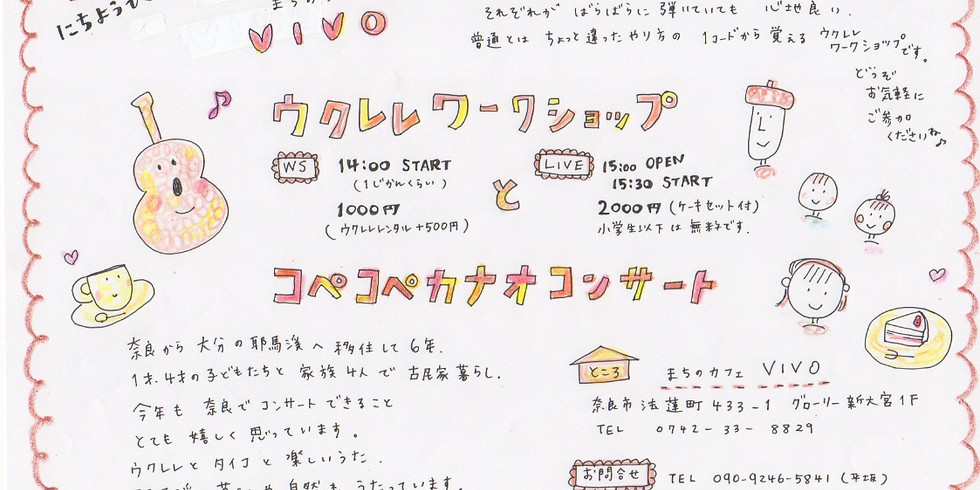 にちようび
まちの
VIVO
それぞれが ばらばらに 弾いていても 心地良い.
普通とは ちょっと違ったやり方の 1コードから覚える ウクレレ
ワークショップです。
どうぞ
お気軽に
ご参加
くださいね♪
ウクレレワークショップ
WS 14:00 START
(1じかんくらい)
1000円
(ウクレレレンタル+500円)
と
LIVE 15:00 OPEN
15:30 START
2000円(ケーキセット付)
小学生以下は無料です.
コペコペカナオコンサート
奈良から 大分の耶馬渓へ 移住して6年.
1才.4才の子どもたちと 家族4人で 古民家暮らし.
今年も 奈良でコンサートできること
とても 嬉しく 思っています。
ウクレレと タイコと 楽しいうた.
自然も うたっています。
ところ
まちのカフェ VIVO
奈良市 法蓮町 433-1 グローリー新大宮1F
TEL 0742-33-8829
お問合せ TEL 090-9246-5841 (平坂)